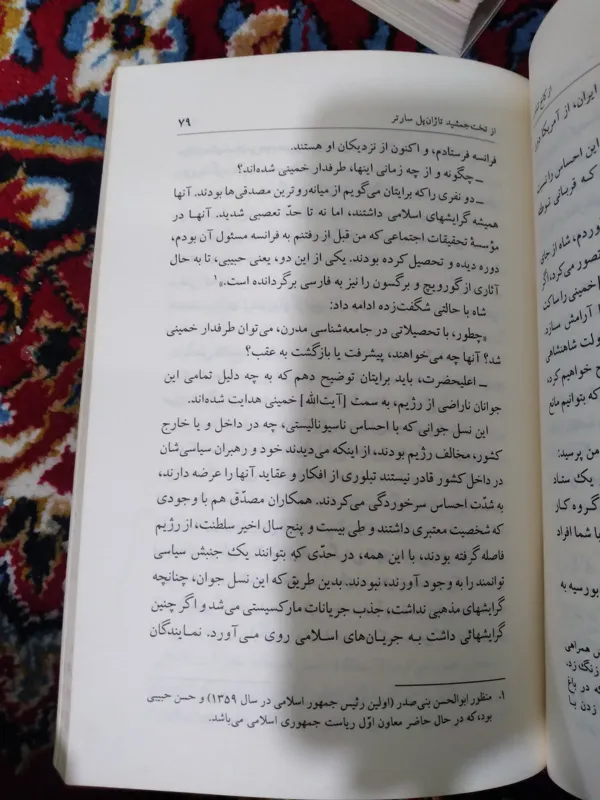 از تخت‌جمشید تا ژان‌پل سارتر ۷۹
فرانسه فرستادم، و اکنون از نزدیکان او هستند.
ـ چگونه و از چه زمانی اینها، طرفدار خمینی شده‌اند؟
ـ دو نفری را که برایتان می‌گویم از میانه‌روترین مصدقی‌ها بودند. آنها
همیشه گرایشهای اسلامی داشتند، اما نه تا حدّ تعصبی شدید. آنها در
مؤسسهٔ تحقیقات اجتماعی که من قبل از رفتنم به فرانسه مسئول آن بودم،
دوره دیده و تحصیل کرده بودند. یکی از این دو، یعنی حبیبی، تا به حال
آثاری از گورویچ و برگسون را نیز به فارسی برگردانده است.»۱
شاه با حالتی شگفت‌زده ادامه داد:
«چطور، با تحصیلاتی در جامعه‌شناسی مدرن، می‌توان طرفدار خمینی
شد؟ آنها چه می‌خواهند، پیشرفت یا بازگشت به عقب؟
ـ اعلیحضرت، باید برایتان توضیح دهم که به چه دلیل تمامی این
جوانان ناراضی از رژیم، به سمت [آیت‌الله] خمینی هدایت شده‌اند.
این نسل جوانی که با احساس ناسیونالیستی، چه در داخل و یا خارج
کشور، مخالف رژیم بودند، از اینکه می‌دیدند خود و رهبران سیاسی‌شان
در داخل کشور قادر نیستند تبلوری از افکار و عقاید آنها را عرضه دارند،
به شدّت احساس سرخوردگی می‌کردند. همکاران مصدّق هم با وجودی
که شخصیت معتبری داشتند و طی بیست و پنج سال اخیر سلطنت، از رژیم
فاصله گرفته بودند، با این همه، در حدّی که بتوانند یک جنبش سیاسی
توانمند را به وجود آورند، نبودند. بدین طریق که این نسل جوان، چنانچه
گرایشهای مذهبی نداشت، جذب جریانات مارکسیستی می‌شد و اگر چنین
گرایشهائی داشت به جریان‌های اسلامی روی می‌آورد. نمایندگان
۱. منظور ابوالحسن بنی‌صدر (اولین رئیس جمهور اسلامی در سال ۱۳۵۹) و حسن حبیبی
بود، که در حال حاضر معاون اوّل ریاست جمهوری اسلامی می‌باشد.
ایران، از آمریکا
این احساس را
که قربانی توطئه
شاه از جای
تصور می‌کرد، اگر
[خمینی را ساکت
آرامش سازد
دولت شاهنشاهی
خواهیم کرد،
که بتوانیم مانع
من پرسید:
یک ستاد
گروه کار
با شما افراد
بورسیه به
همراهی
زنگ زد.
که در باغ
زدن با